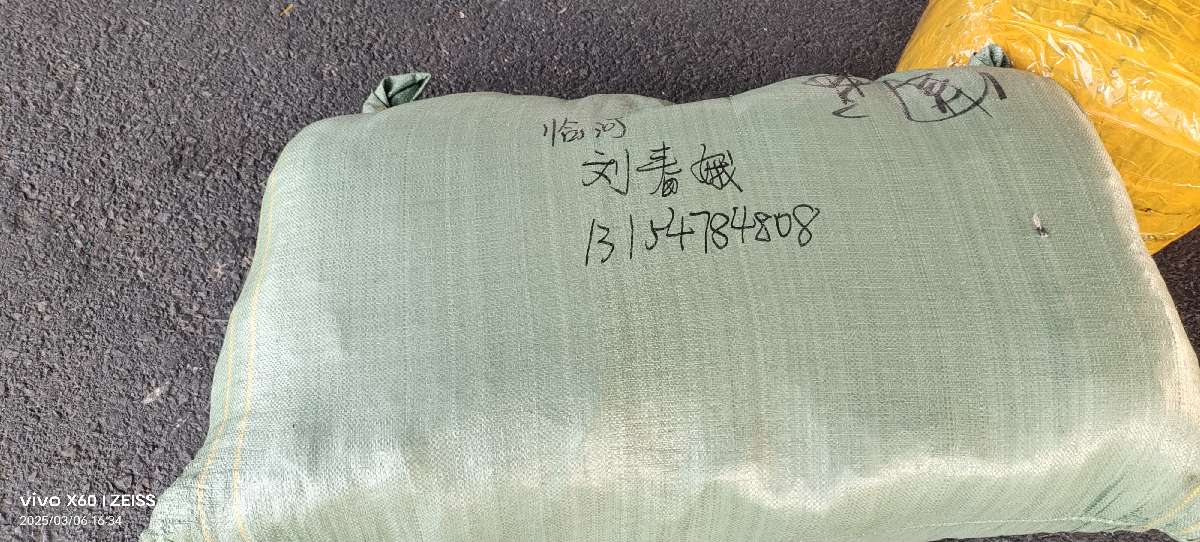 临河
刘春娥
13154784808
vivo X60 | ZEISS
2025/03/06 16:34